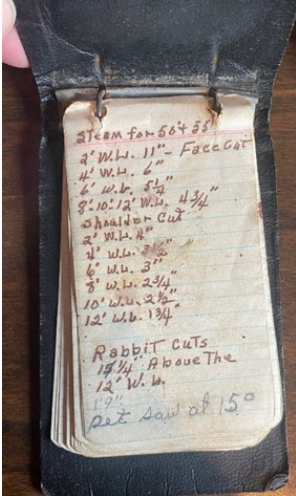 STeam for 50 + 55'
2' W.L. 11" - Face Cut
4' W.L. 6"
6' W.L. 5 1/2"
8' 10' 12' W.L. 4 3/4"
Shoulder Cut
2' W.L. 4"
4' W.L. 3 1/2"
6' W.L. 3"
8' W.L. 2 3/4"
10' W.L. 2 1/2"
12' W.L. 1 3/4"
RabbiT CuTs
1/4" Above The
12' W.L.
1' 9"
Set Saw at 15°